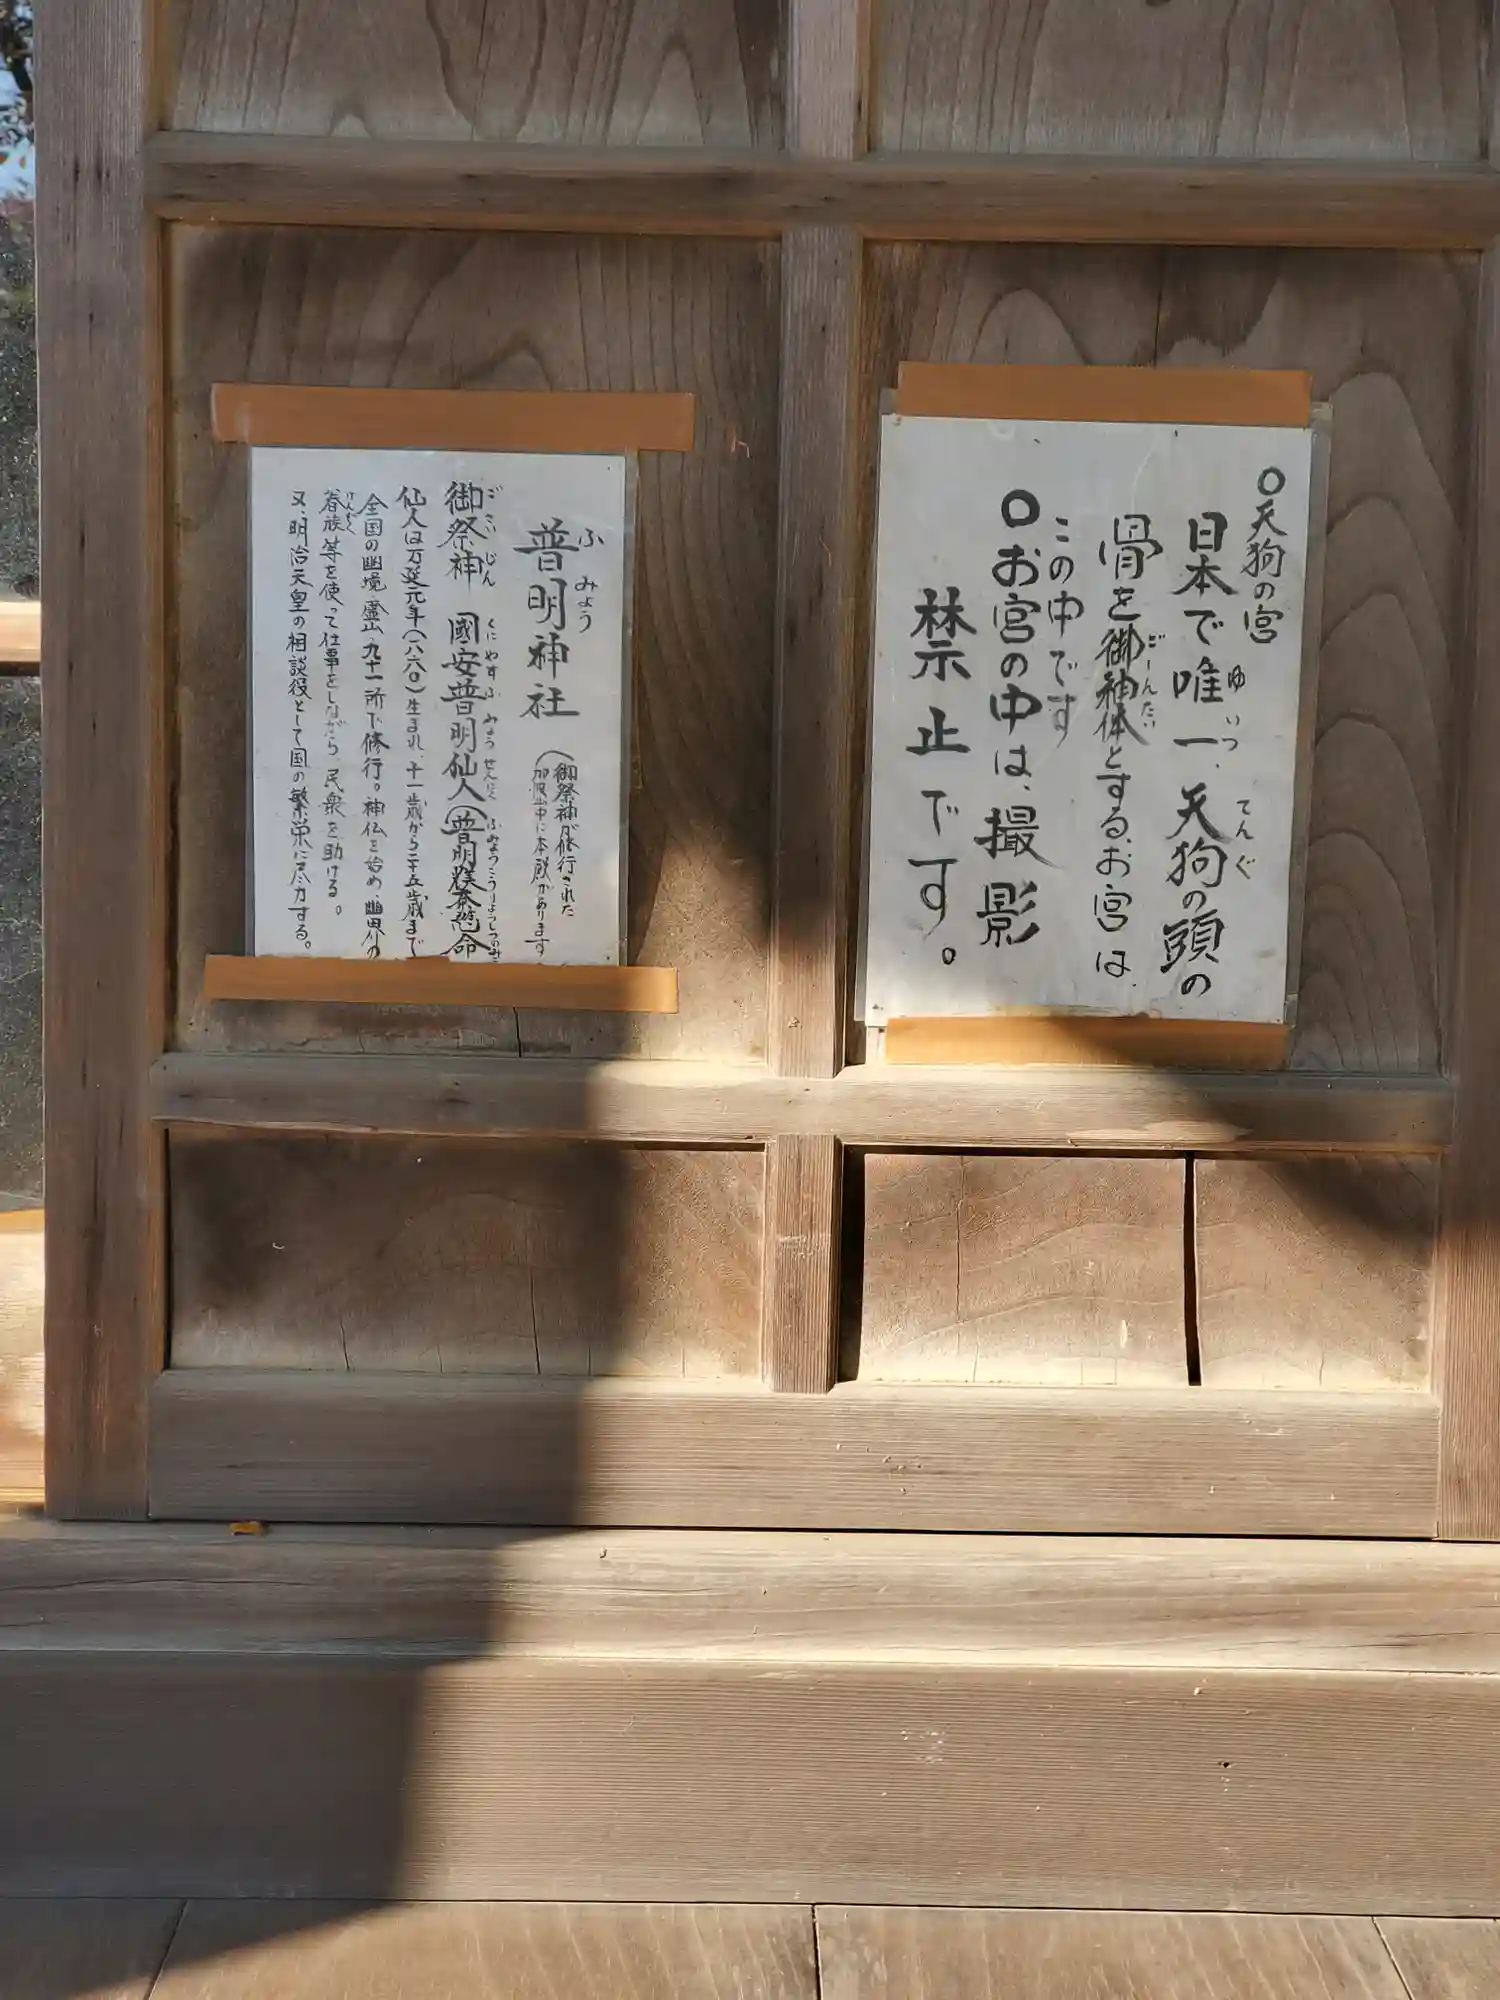 ○天狗の宮
日本で唯一、天狗の頭の
骨を御神体とする、お宮は、
この中です
○お宮の中は、撮影
禁止です。
普明神社
(御祭神が修行された
加波山中に本殿があります
御祭神 國安普明仙人(普明
仙人は万延元年(一八六〇)生まれ、十一歳から二十五歳まで
全国の幽境・霊山・九十一所で修行。神仏を始め、幽界の
眷族等を使って仕事をしながら、民衆を助ける。
又、明治天皇の相談役として国の繁栄に尽力する。